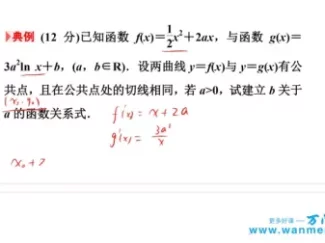 典例 (12 分)已知函数 f(x)=\frac{1}{2}x²+2ax，与函数 g(x)=
3a²ln x+b，(a，b∈R)．设两曲线 y=f(x)与 y=g(x)有公
共点，且在公共点处的切线相同，若 a>0，试建立 b 关于
(x₀, y₀)
a 的函数关系式．
f'(x) = x+2a
g'(x) = \frac{3a²}{x}
x₀+2
更多好课
www.wanme